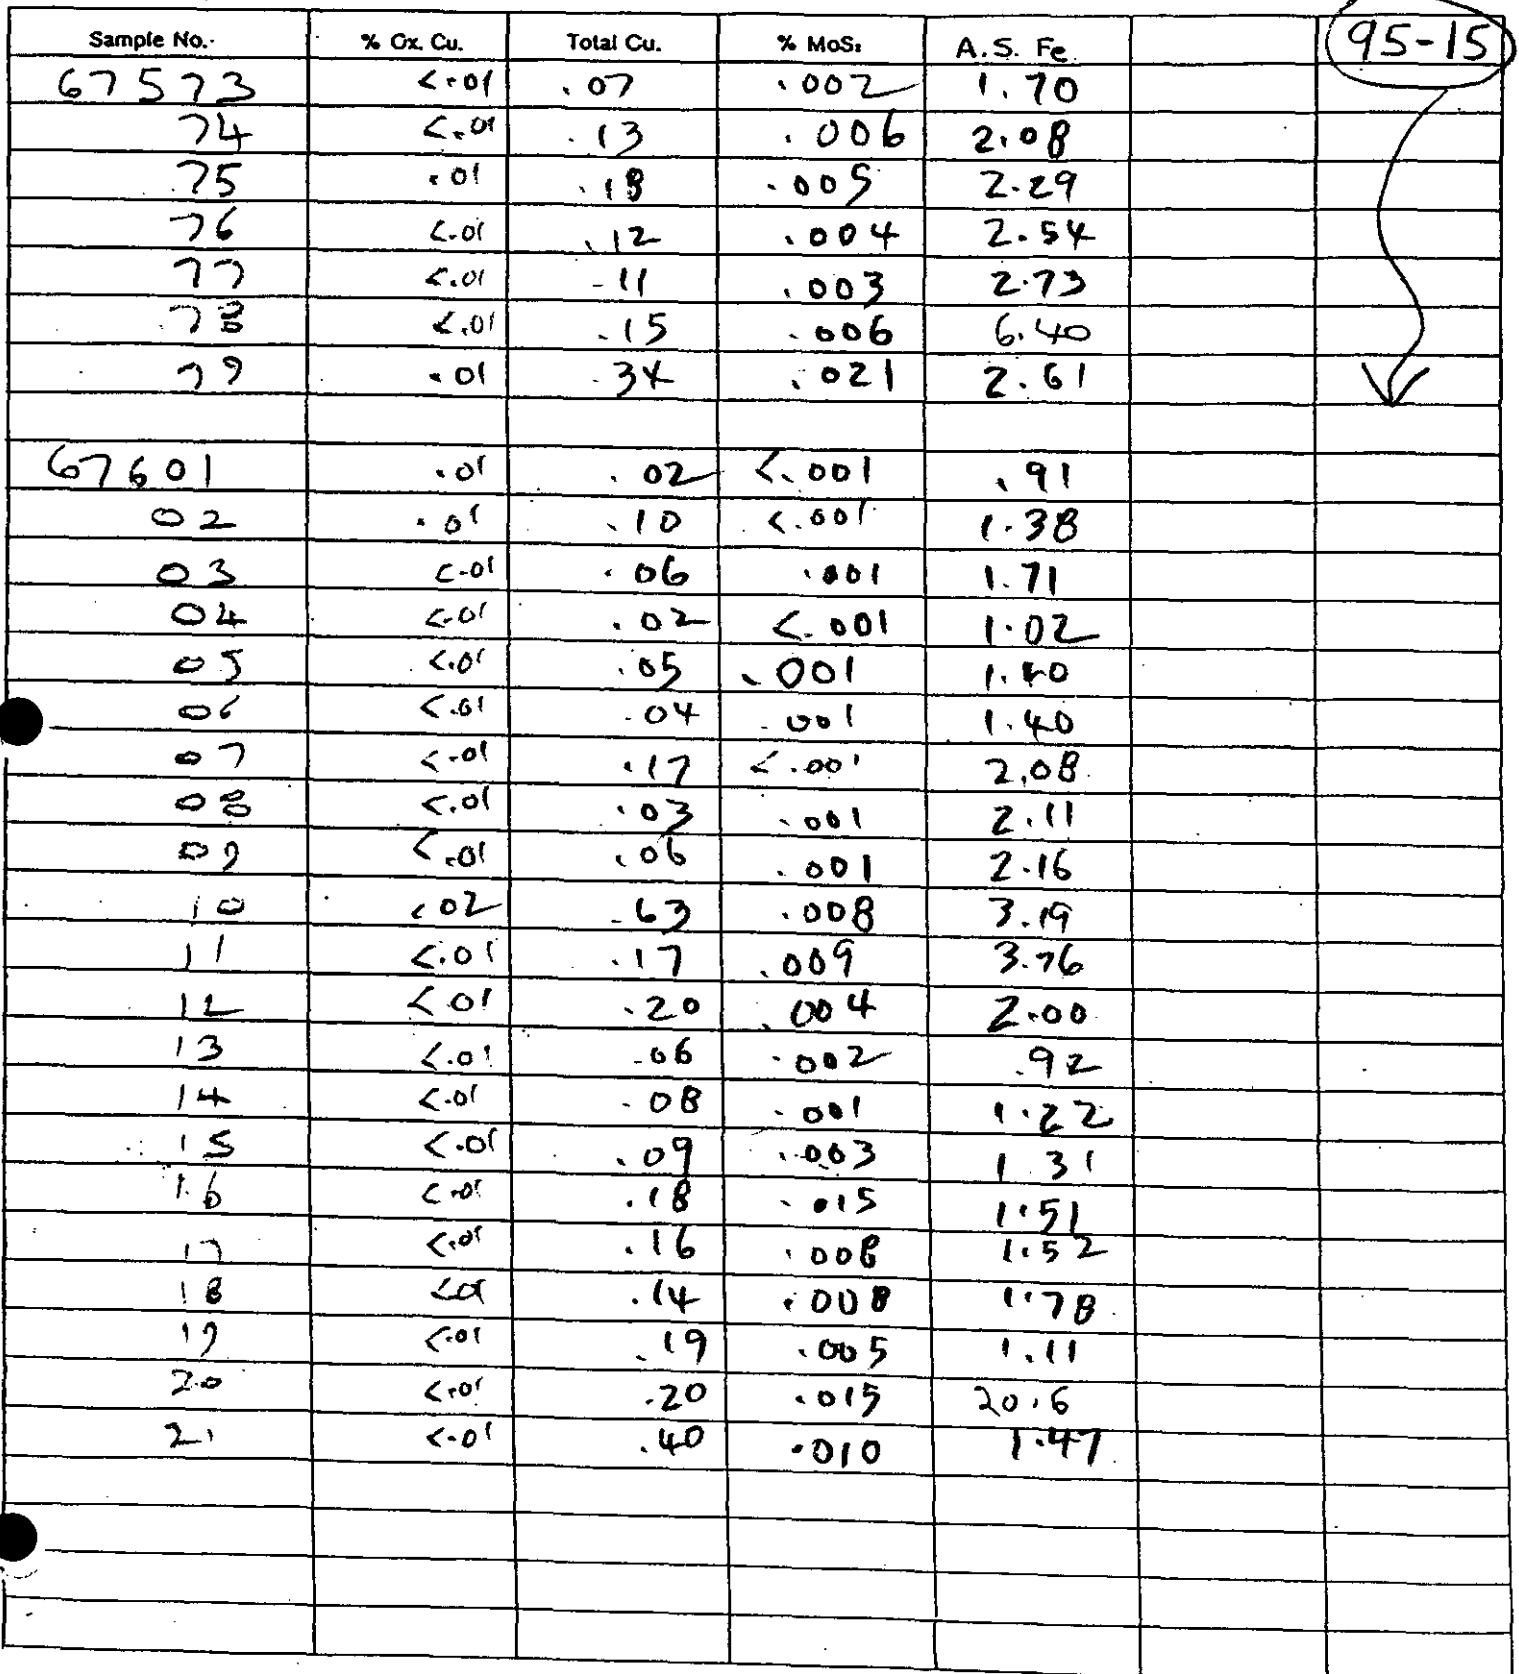 Sample No. % Ox. Cu. Total Cu. % MoS₂ A.S. Fe 95-15
67573 <.01 .07 .002 1.70
74 <.01 .13 .006 2.08
75 .01 .18 .005 2.29
76 <.01 .12 .004 2.54
77 <.01 .11 .003 2.73
78 <.01 .15 .006 6.40
79 .01 .34 .021 2.61
67601 .01 .02 <.001 .91
02 .01 .10 <.001 1.38
03 <.01 .06 .001 1.71
04 <.01 .02 <.001 1.02
05 <.01 .05 .001 1.40
06 <.01 .04 .001 1.40
07 <.01 .17 <.001 2.08
08 <.01 .03 .001 2.11
09 <.01 .06 .001 2.16
10 .02 .63 .008 3.19
11 <.01 .17 .009 3.76
12 <.01 .20 .004 2.00
13 <.01 .06 .002 .92
14 <.01 .08 .001 1.22
15 <.01 .09 .003 1.31
16 <.01 .18 .015 1.51
17 <.01 .16 .008 1.52
18 <.01 .14 .008 1.78
19 <.01 .19 .005 1.11
20 <.01 .20 .015 20.6
21 <.01 .40 .010 1.47